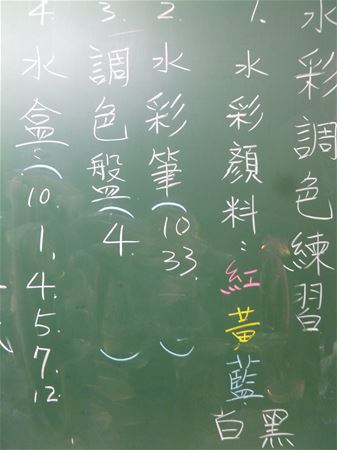 水彩調色練習
1. 水彩顏料：紅黃藍白黑
2. 水彩筆（10. 33. ）
3. 調色盤（4. ）
4. 水盒：（10. 1. 4. 5. 7. 12.